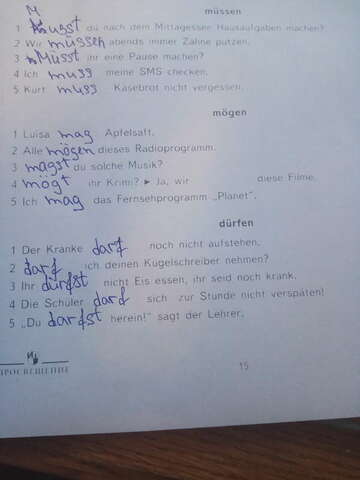 müssen
1 Musst du nach dem Mittagessen Hausaufgaben machen?
2 Wir müssen abends immer Zähne putzen.
3 Müsst ihr eine Pause machen?
4 Ich muss meine SMS checken.
5 Kurt muss Käsebrot nicht vergessen.
mögen
1 Luisa mag Apfelsaft.
2 Alle mögen dieses Radioprogramm.
3 magst du solche Musik?
4 mögt ihr Krimi? ► Ja, wir diese Filme.
5 Ich mag das Fernsehprogramm „Planet".
dürfen
1 Der Kranke darf noch nicht aufstehen.
2 darf ich deinen Kugelschreiber nehmen?
3 Ihr dürfst nicht Eis essen, ihr seid noch krank.
4 Die Schüler darf sich zur Stunde nicht verspäten!
5 „Du darfst herein!" sagt der Lehrer.
РОСВЕЩЕНИЕ
15